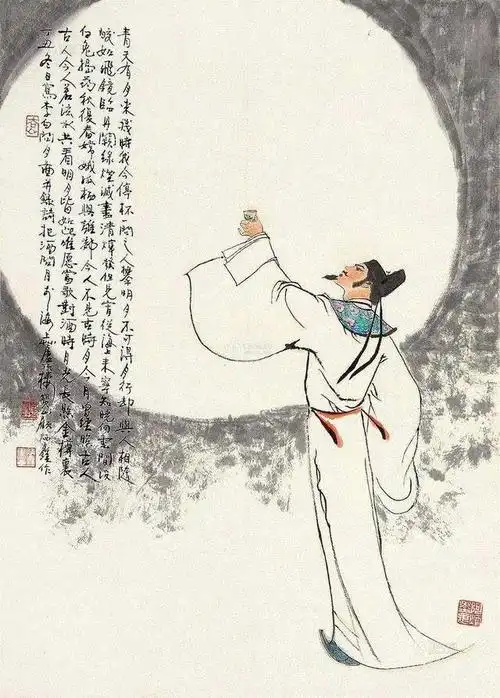 青天有月來幾時我今停杯一問之人攀明月不可得月行却與人相隨
皎如飛鏡臨丹闕綠煙滅盡清輝發但見宵從海上來寧知曉向雲間沒
白兔搗药秋復春嫦娥孤栖與誰鄰今人不見古時月今月曾經照古人
古人今人若流水共看明月皆如此唯愿當歌對酒時月光長照金樽裏
丁丑冬日寫李白問月圖并錄詩把酒問月於海上 顧炳鑫作